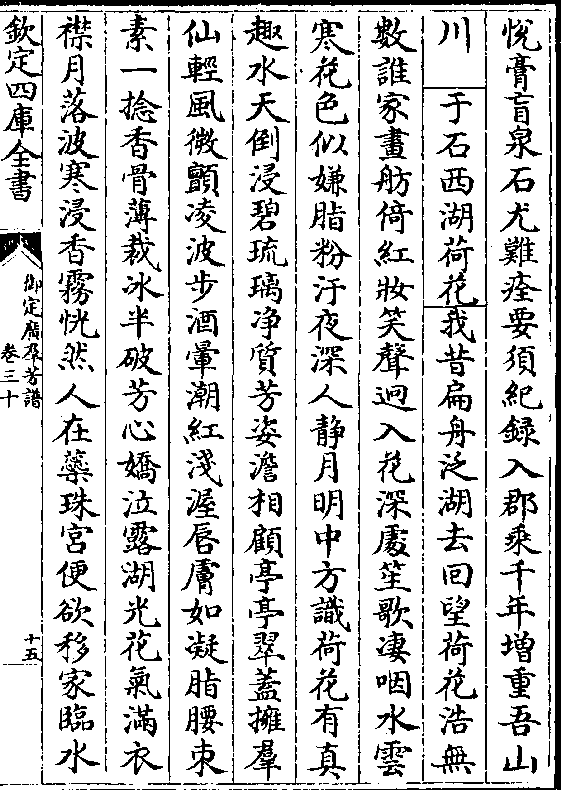 悅膏肓泉石尤難痊要須紀録入郡乘千年增重吾山
川　于石西湖荷花我昔扁舟泛湖去回望荷花浩無
數誰家畫舫倚紅妝笑聲迥入花深處笙歌凄咽水雲
寒花色似嫌脂粉汙夜深人靜月明中方識荷花有真
趣水天倒浸碧琉璃净質芳姿澹相顧亭亭翠葢擁羣
仙輕風微顫凌波步酒暈潮紅淺渥唇膚如凝脂腰束
素一捻香骨薄裁冰半破芳心嬌泣露湖光花氣滿衣
襟月落波寒浸香霧恍然人在蘂珠宮便欲移家臨水
欽定四庫全書
御定廣羣芳譜
卷三十
十五